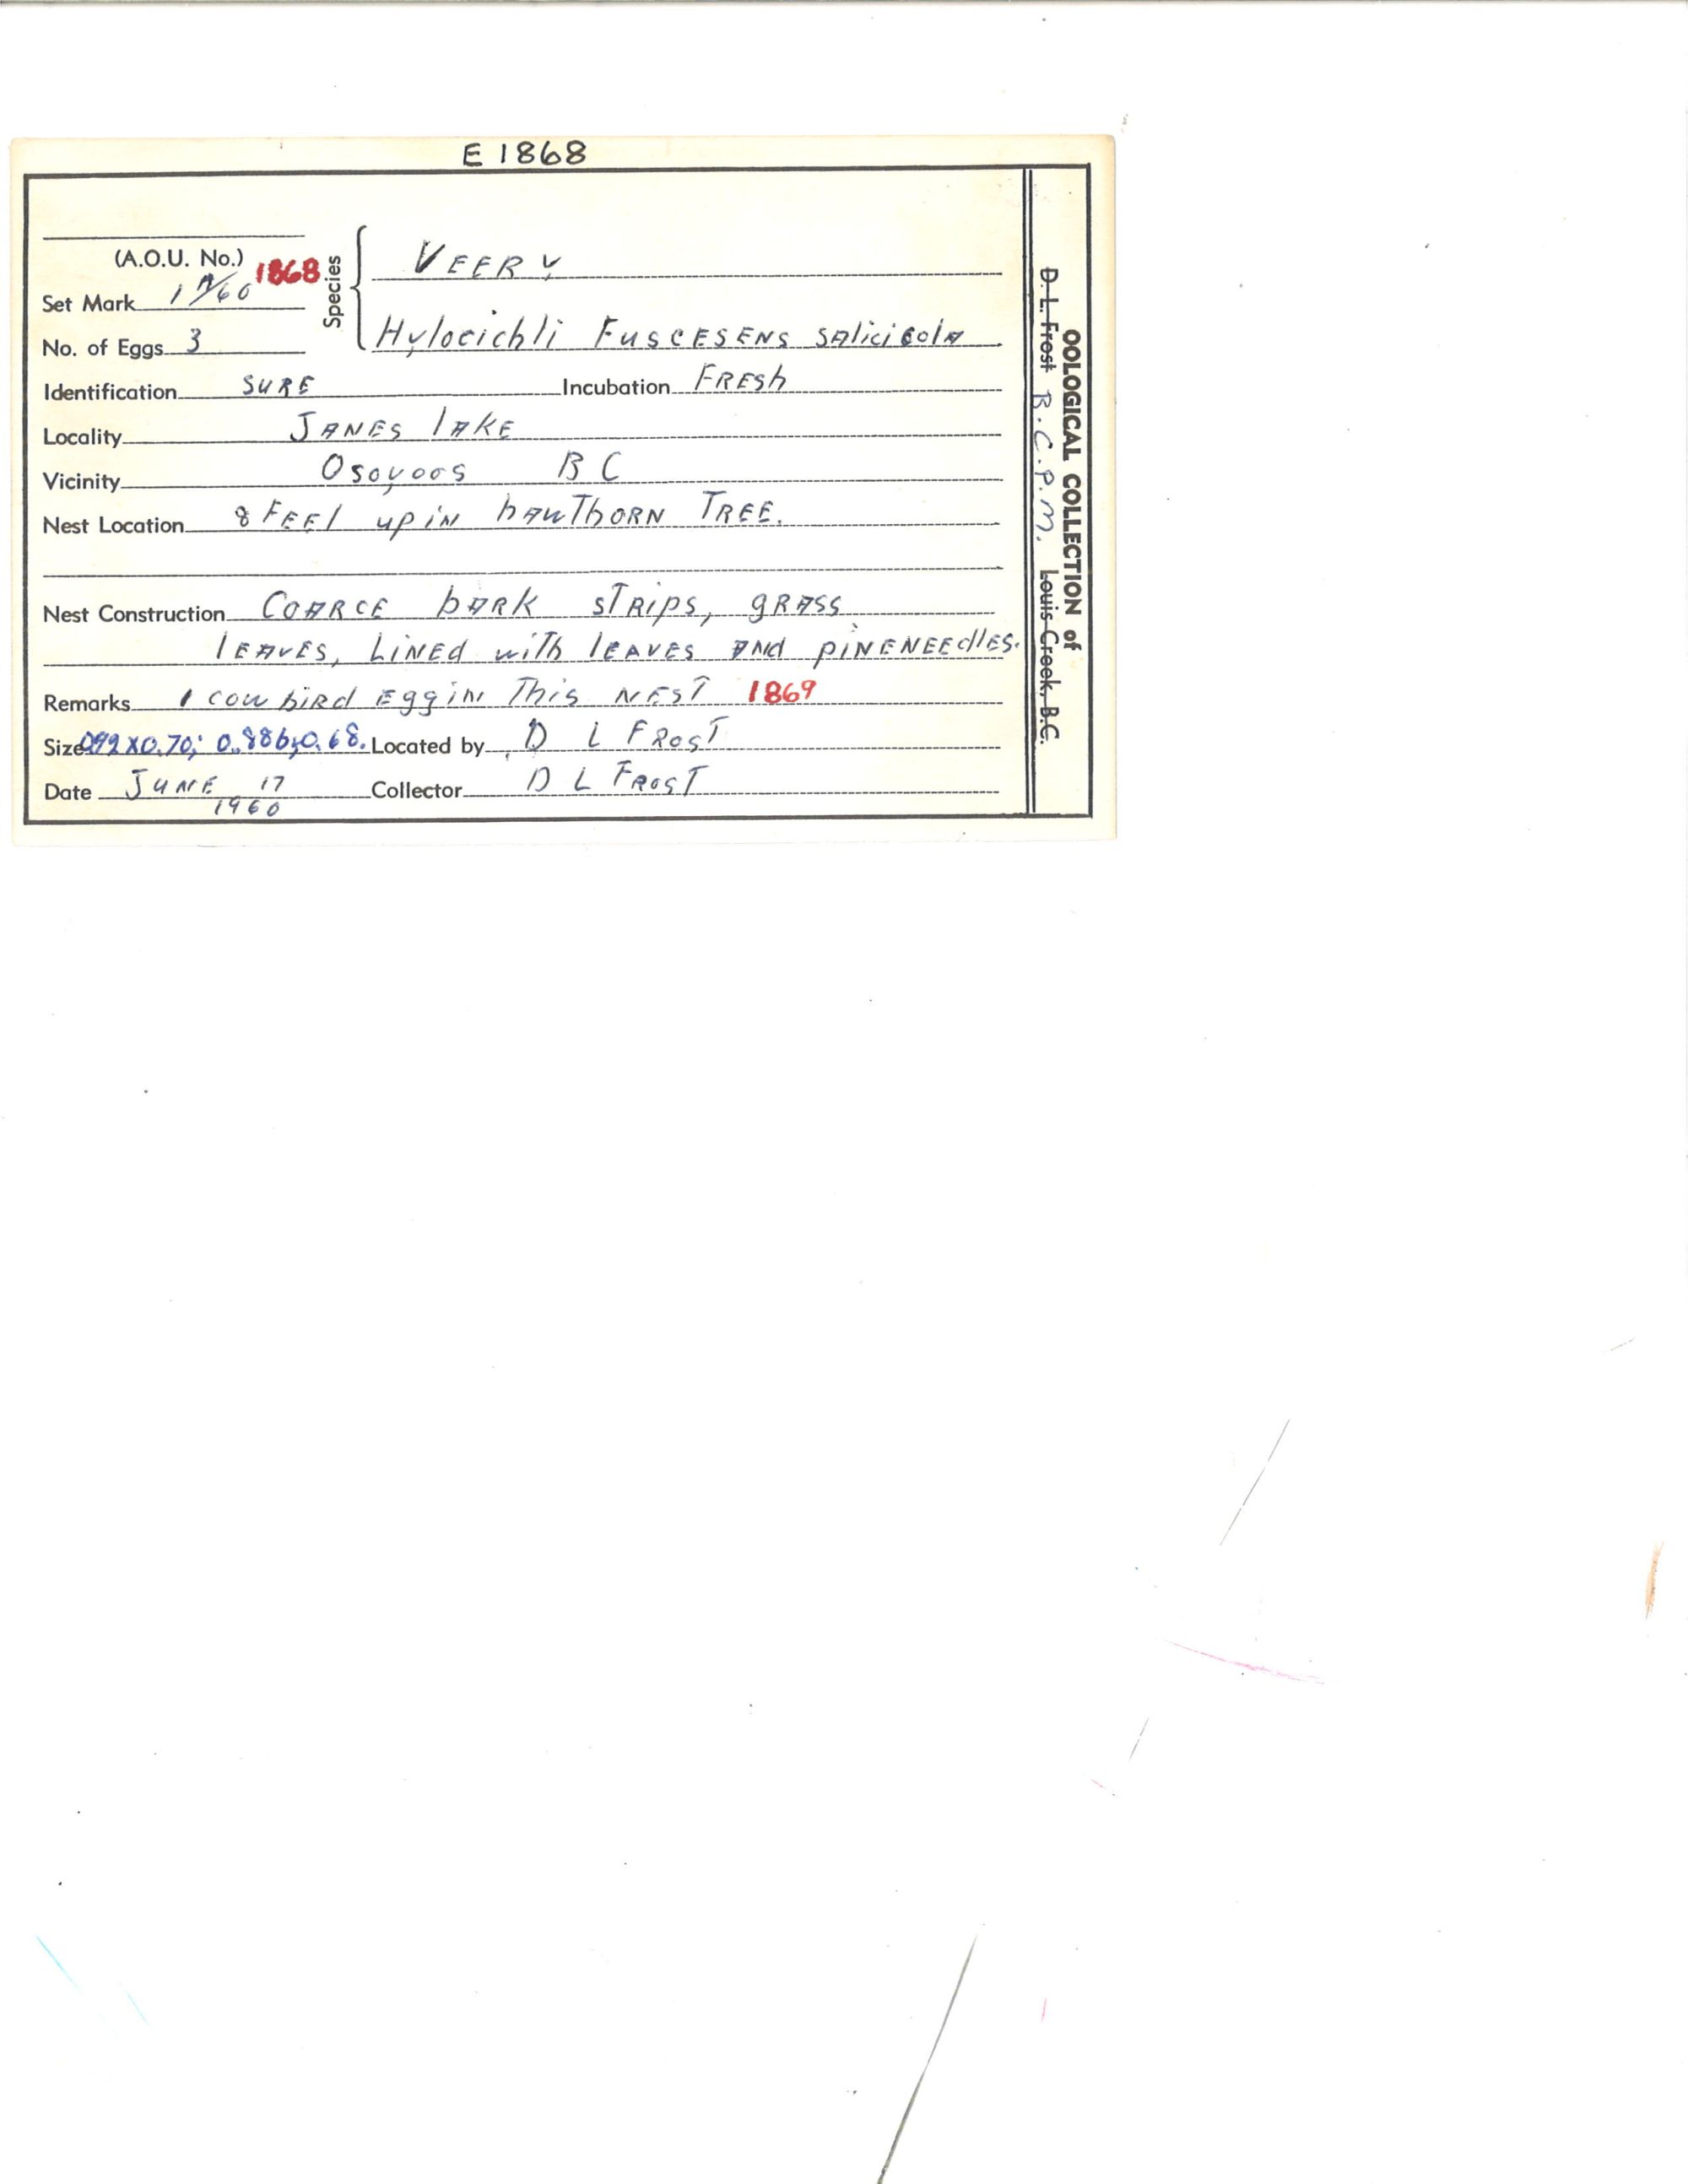 E 1868
(A.O.U. No.) 1868
Set Mark 1 A/60
No. of Eggs 3
Species
VEERY
Hylocichli FUSCESENS SAlicicolA
Identification SURE Incubation FRESh
Locality JANES lAKE
Vicinity Osoyoos B C
Nest Location 8 FEEl up iN hAwThORN TREE.
Nest Construction COARCE bARK STRips, gRASS
lEAVES, LiNEd wiTh lEAVES ANd piNENEEdlES.
Remarks 1 cowbiRd Egg iN This NEST 1869
Size 0.92 X 0.70; 0.886,0.68. Located by D L FROST
Date JUNE 17 Collector D L FROST
1960
OOLOGICAL COLLECTION of
D. L. Frost B.C.P.M. Louis Creek, B.C.